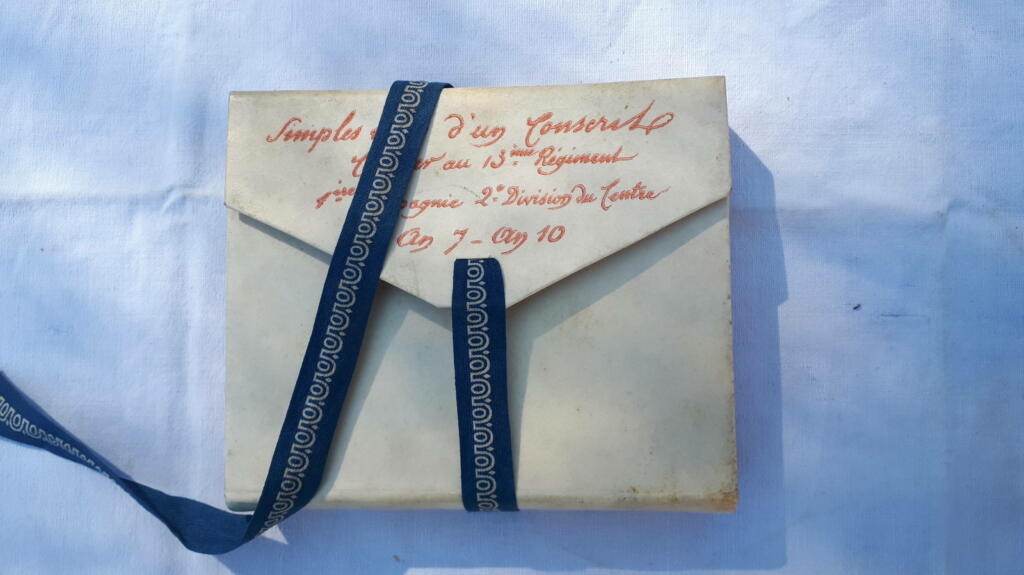 Simples d'un Conscrit
au 13ème Régiment
2e Division du Centre
An 7 - An 10